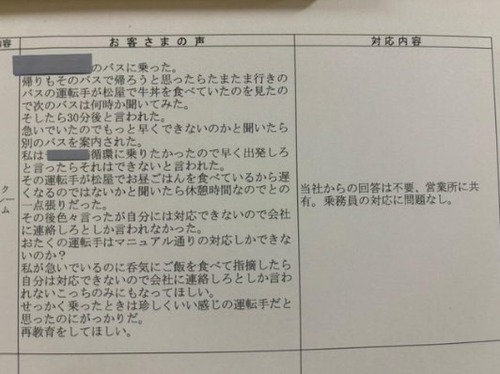 内容
お客さまの声
対応内容
のバスに乗った。
帰りもそのバスで帰ろうと思ったらたまたま行きの
バスの運転手が松屋で牛丼を食べていたのを見たの
で次のバスは何時か聞いてみた。
そしたら30分後と言われた。
急いでいたのでもっと早くできないのかと聞いたら
別のバスを案内された。
私は
循環に乗りたかったので早く出発しろ
と言ったらそれはできないと言われた。
その運転手が松屋でお昼ごはんを食べているから遅
くなるのではないかと聞いたら休憩時間なのでとの
一点張りだった。
その後色々言ったが自分には対応できないので会社
に連絡しろとしか言われなかった。
おたくの運転手はマニュアル通りの対応しかできな
いのか?
私が急いでいるのに呑気にご飯を食べて指摘したら
自分は対応できないので会社に連絡しろとしか言わ
れないこっちのみにもなってほしい。
せっかく乗ったときは珍しくいい感じの運転手だと
思ったのにがっかりだ。
再教育をしてほしい。
クレーム
当社からの回答は不要、営業所に共
有。乗務員の対応に問題なし。